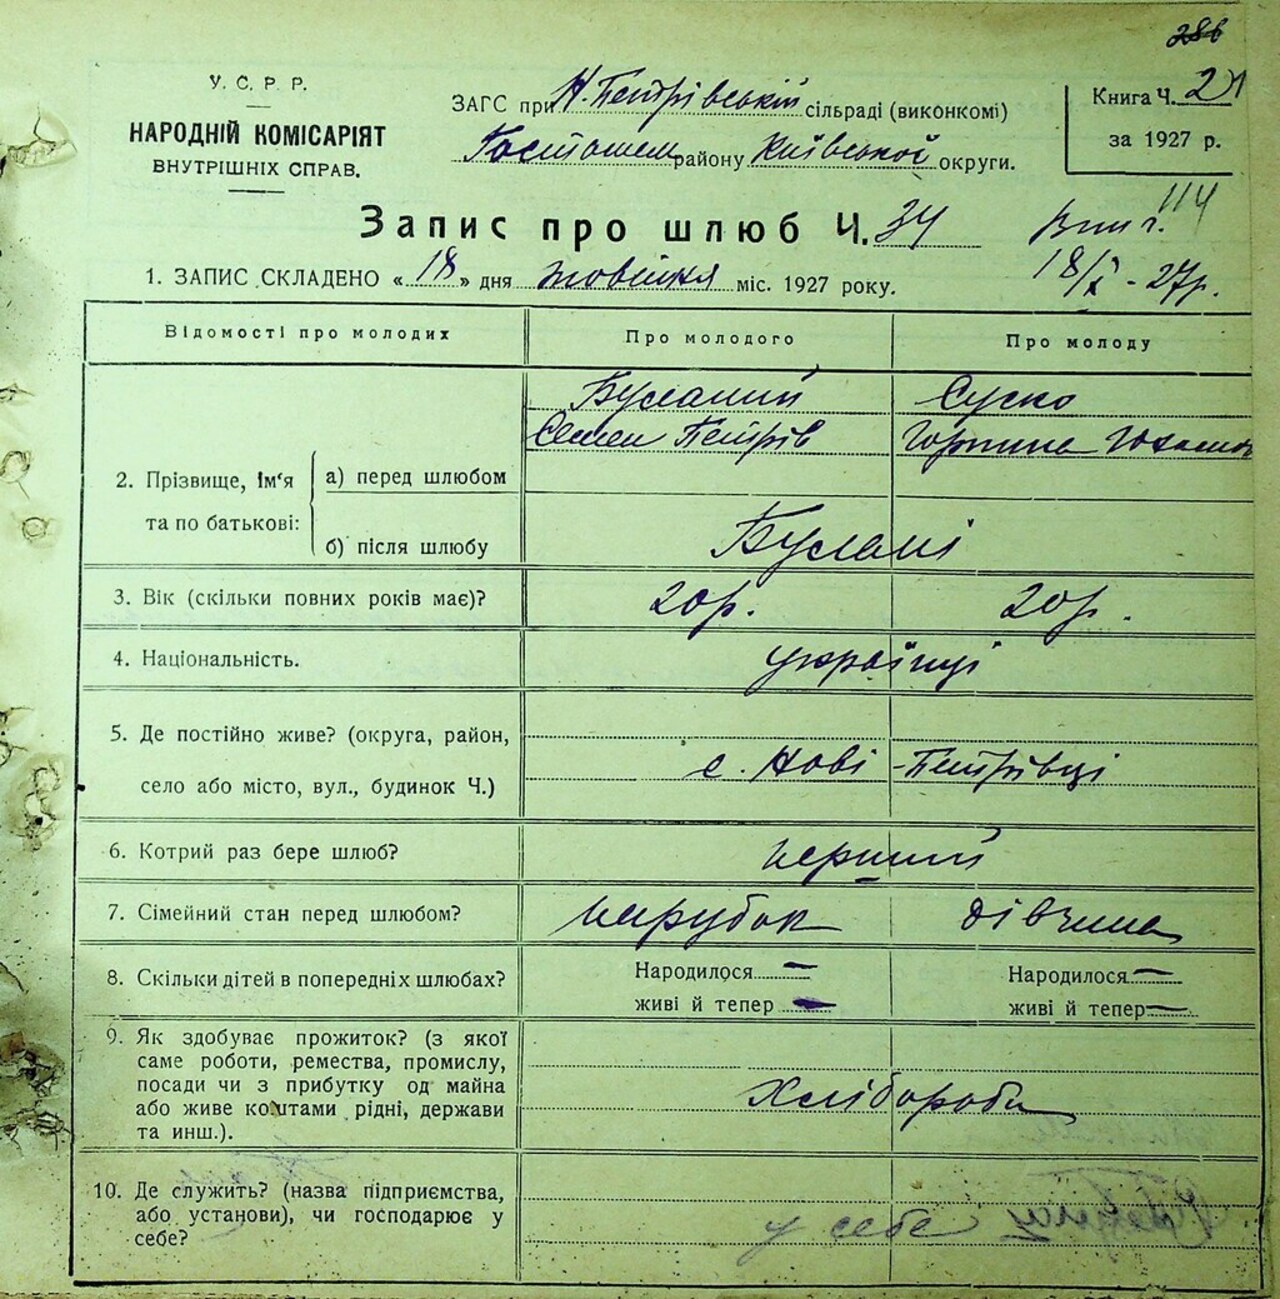 286
У. С. Р. Р.
НАРОДНІЙ КОМІСАРІЯТ
ВНУТРІШНІХ СПРАВ.
ЗАГС при Н.Петрівській сільраді (виконкомі)
Гостомем району Київської округи.
Книга Ч. 2
за 1927 р.
Запис про шлюб Ч. 34
114
18/X - 27р.
1. ЗАПИС СКЛАДЕНО « 18 » дня жовтня міс. 1927 року.
Відомості про молодих Про молодого Про молоду
Бусланий Суско
Семен Петрів Горпина
2. Прізвище, ім‘я та по батькові:
а) перед шлюбом
б) після шлюбу
Буслані
3. Вік (скільки повних років має)? 20р. 20р.
4. Національність. українці
5. Де постійно живе? (округа, район,
село або місто, вул., будинок Ч.)
с. Нові-Петрівці
6. Котрий раз бере шлюб? перший
7. Сімейний стан перед шлюбом? парубок дівчина
8. Скільки дітей в попередніх шлюбах? Народилося — Народилося —
живі й тепер — живі й тепер —
9. Як здобуває прожиток? (з якої
саме роботи, ремества, промислу,
посади чи з прибутку од майна
або живе коштами рідні, держави
та инш.).
Хлібороби
10. Де служить? (назва підприємства,
або установи), чи господарює у
себе?
у себе